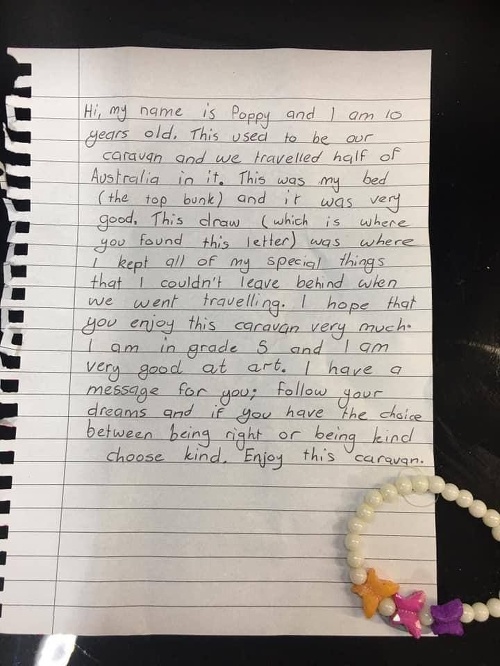 Hi, my name is Poppy and I am 10
years old. This used to be our
caravan and we travelled half of
Australia in it. This was my bed
(the top bunk) and it was very
good. This draw (which is where
you found this letter) was where
I kept all of my special things
that I couldn't leave behind when
we went travelling. I hope that
you enjoy this caravan very much.
I am in grade 5 and I am
very good at art. I have a
message for you; follow your
dreams and if you have the choice
between being right or being kind
choose kind. Enjoy this caravan.